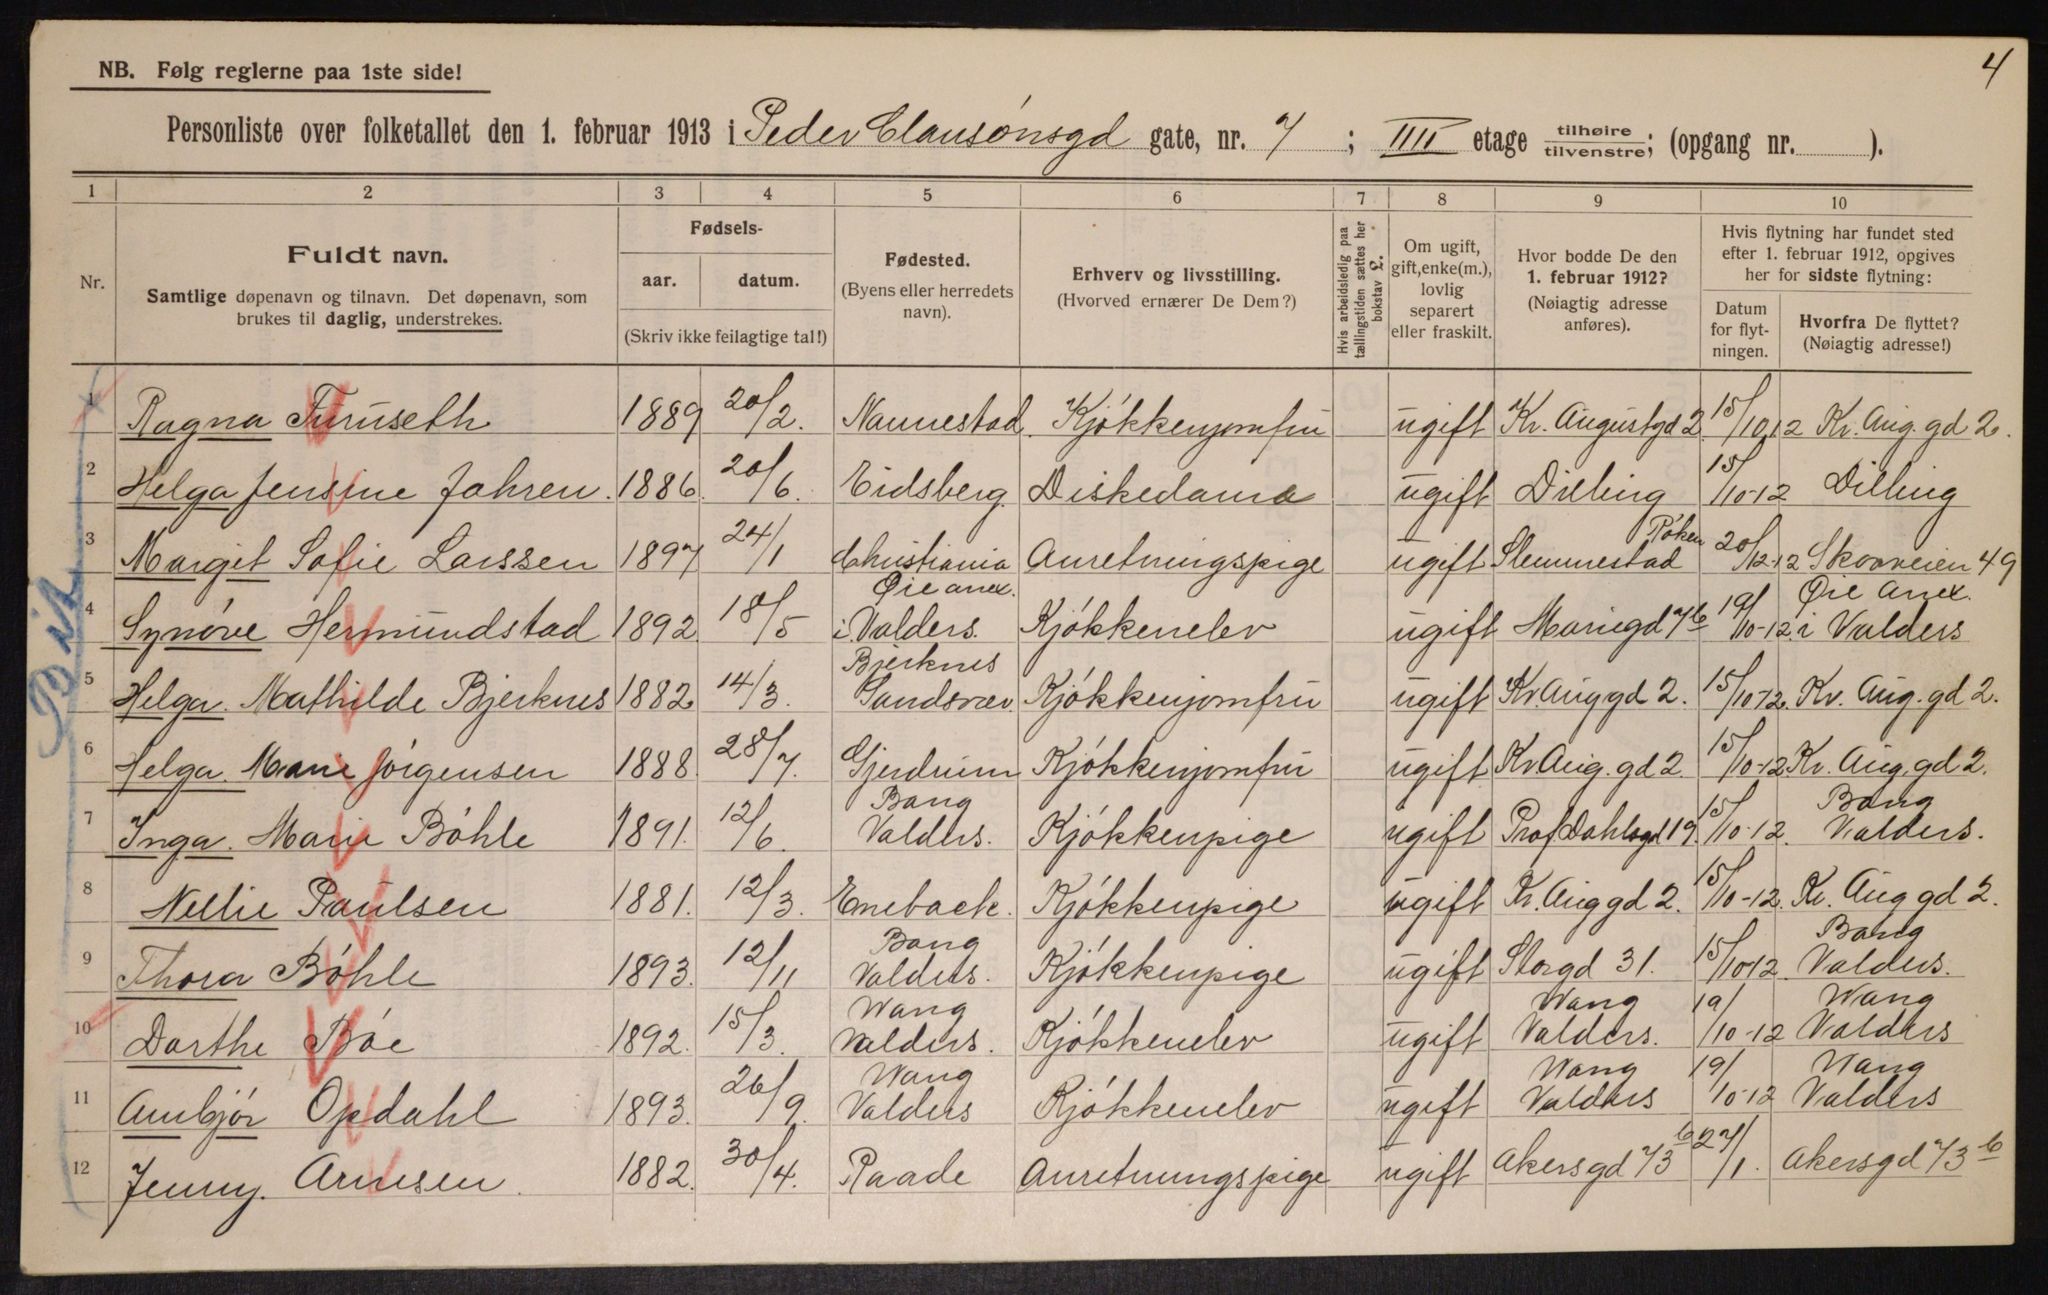 4
NB. Følg reglerne paa 1ste side!
Personliste over folketallet den 1. februar 1913 i Peder Clausönsgd gate, nr. 7 ; IIII etage tilhøire / tilvenstre ; (opgang nr. ).
1 2 3 4 5 6 7 8 9 10
Nr.
Fuldt navn.
Samtlige døpenavn og tilnavn. Det døpenavn, som
brukes til daglig, understrekes.
Fødsels-
aar. datum.
(Skriv ikke feilagtige tal!)
Fødested.
(Byens eller herredets
navn).
Erhverv og livsstilling.
(Hvorved ernærer De Dem?)
Hvis arbeidsledig paa
tællingstiden sættes her
bokstav L.
Om ugift,
gift, enke(m.),
lovlig
separert
eller fraskilt.
Hvor bodde De den
1. februar 1912?
(Nøiagtig adresse
anføres).
Hvis flytning har fundet sted
efter 1. februar 1912, opgives
her for sidste flytning:
Datum
for flyt-
ningen.
Hvorfra De flyttet?
(Nøiagtig adresse!)
1 Ragna Furuseth 1889 20/2. Nannestad. Kjökkenjomfru ugift Kr. Augustgd 2 15/10 12 Kr. Aug. gd 2.
2 Helga Jensine Jahren. 1886. 20/6. Eidsberg. Diskedama ugift Dilling 15/10-12 Dilling
3 Margit Sofie Larssen 1897 24/1 Christiania Anretningspige ugift Slemmestad Röken 20/12-12 Skovveien 49
4 Synöve Hermundstad 1892 18/5 Øie anex. i Valders. Kjökkenelev ugift Mariegd 7b 19/10-12. Øie anex. i Valders
5 Helga. Mathilde Bjerknes 1882 14/3. Bjerknes Sandsvær. Kjökkenjomfru ugift Kr. Aug gd 2. 15/10-12. Kr. Aug. gd 2.
6 Helga. Marie Jörgensen 1888. 28/7. Gjerdrum Kjökkenjomfru ugift Kr. Aug. gd 2. 15/10-12 Kr. Aug. gd 2.
7 Inga. Marie Böhle 1891. 12/6. Bang Valders. Kjökkenpige ugift Prof. Dahlsgd 19. 15/10-12. Bang Valders.
8 Nellie Paulsen 1881. 12/3. Eneback. Kjökkenpige ugift Kr. Aug gd 2. 15/10-12. Kr. Aug gd 2.
9 Thora Böhle 1893. 12/11 Bang Valders. Kjökkenpige ugift Storgd 31. 15/10 12. Bang Valders.
10 Dorthe Böe 1892. 15/3. Wang Valders. Kjökkenelev ugift Wang Valders. 19/10-12 Wang Valders
11 Ambjör Opdahl 1893. 26/9. Wang Valders Kjökkenelev ugift Wang Valders 19/10-12 Wang Valders
12 Jenny. Arnesen. 1882. 30/4. Raade Anretningspige ugift Akersgd 73b 27/1. Akersgd 73b